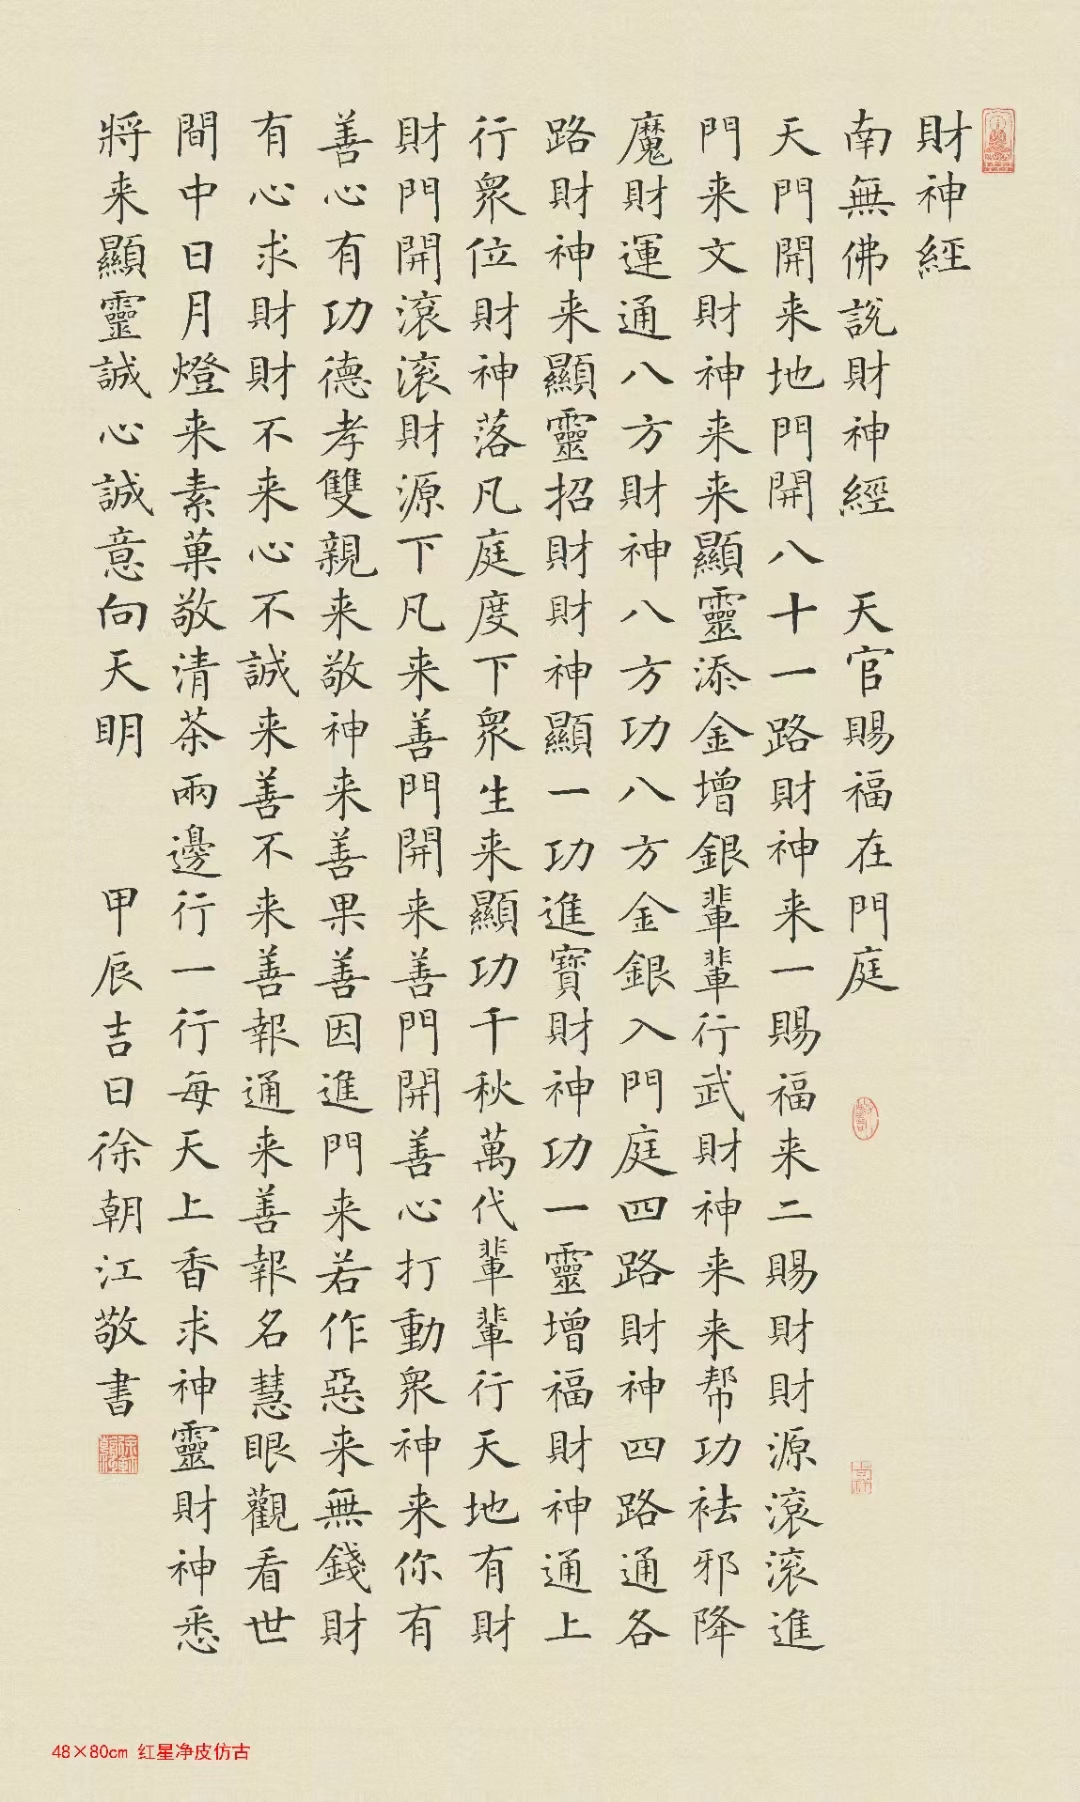 財神經
南無佛說財神經 天官賜福在門庭
天門開来地門開八十一路財神来一賜福来二賜財財源滚滚進
門来文財神来来顯靈添金增銀輩輩行武財神来来帮功袪邪降
魔財運通八方財神八方功八方金銀入門庭四路財神四路通各
路財神来顯靈招財財神顯一功進寶財神功一靈增福財神通上
行衆位財神落凡庭度下衆生来顯功千秋萬代輩輩行天地有財
財門開滚滚財源下凡来善門開来善門開善心打動衆神来你有
善心有功德孝雙親来敬神来善果善因進門来若作惡来無錢財
有心求財財不来心不誠来善不来善報通来善報名慧眼觀看世
間中日月燈来素菓敬清茶兩邊行一行每天上香求神靈財神悉
將来顯靈誠心誠意向天明 甲辰吉日徐朝江敬書
48×80cm 红星净皮仿古